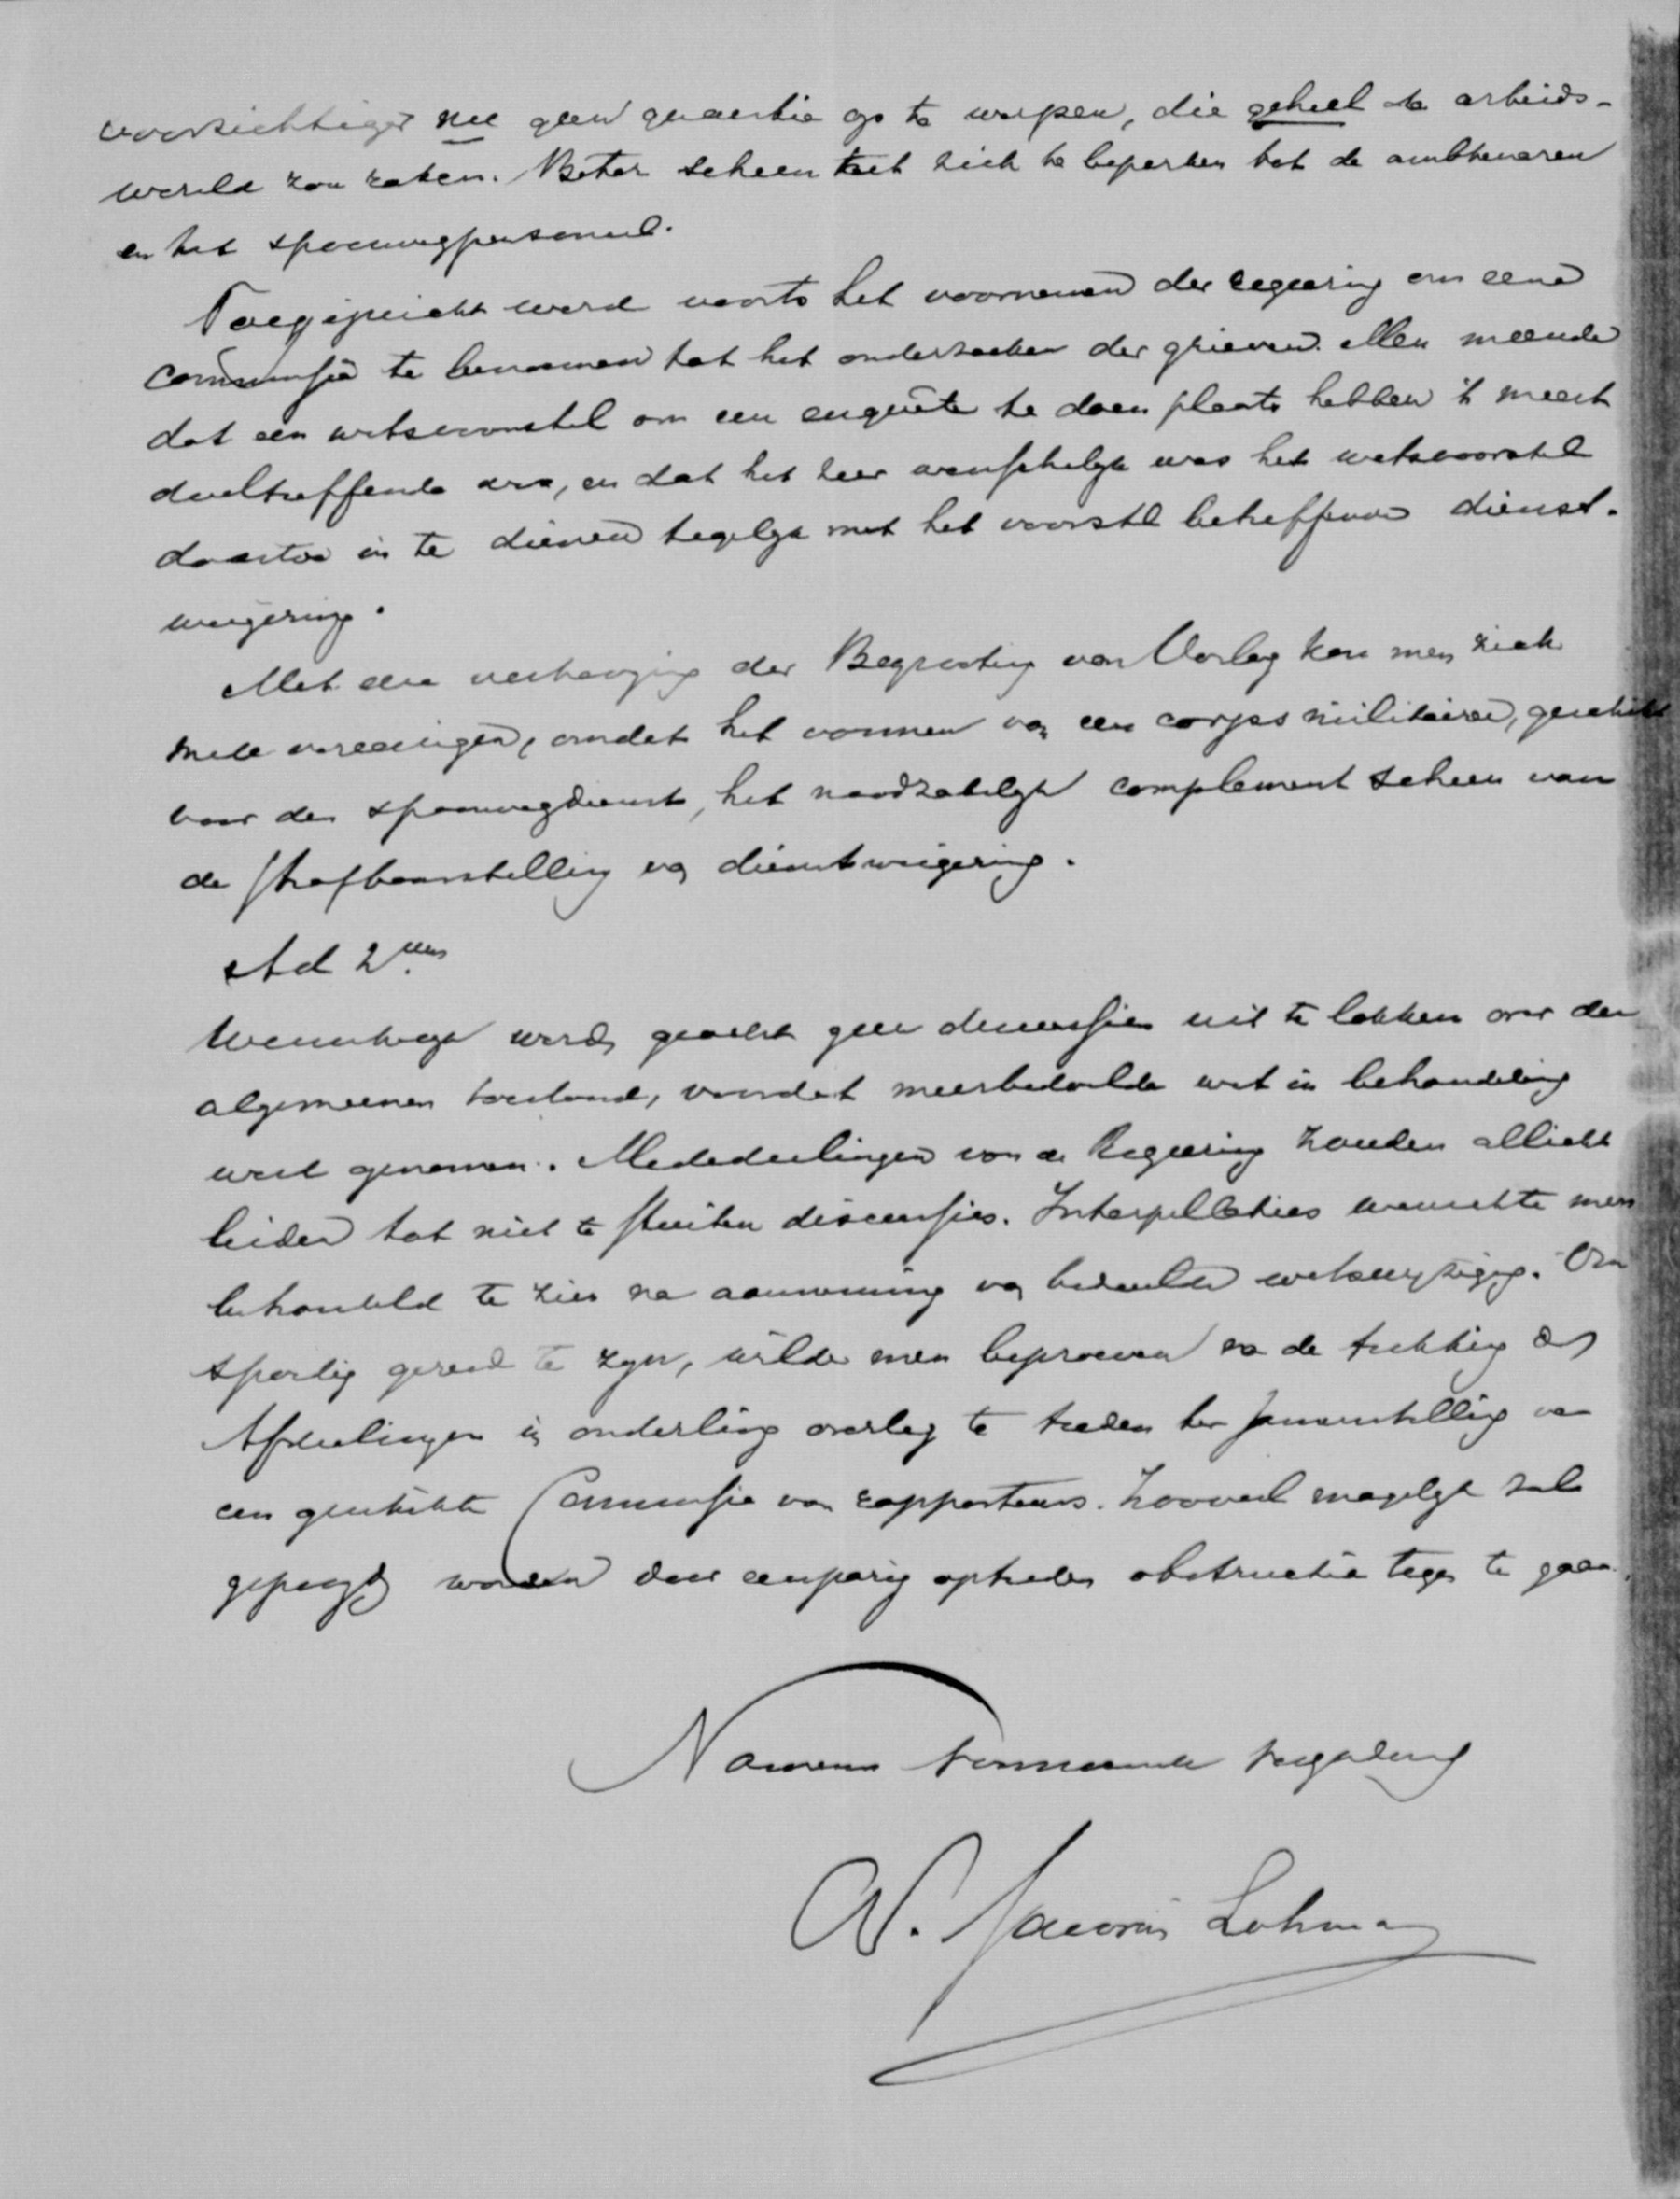 voorzichtiger nu geen quaestie op te werpen, die geheel de arbeids-
wereld zou raken. Beter scheen het zich te beperken tot de ambtenaren
en het spoorwegpersoneel.
Toegejuicht werd voorts het voornemen der regeering om eene
commissie te benoemen tot het onderzoeken der grieven. Men meende
dat een wetsvoorstel om een enquête te doen plaats hebben 't meest
doeltreffende was, en dat het zeer wenschelyk was het wetsvoorstel
daartoe in te dienen tegelyk met het voorstel betreffende dienst-
weigering.
Met eene verhooging der Begrooting van Oorlog kon men zich
mede vereenigen, omdat het vormen van een corps militairen, geschikt
voor den spoorwegdienst, het noodzakelyk complement scheen van
de strafbaarstelling van dienstweigering.
Ad 2um
Wenschelyk werd geacht geen discussies uit te lokken over den
algemeenen toestand, voordat meerbedoelde wet in behandeling
werd genomen. Mededeelingen van de Regeering zouden allicht
leiden tot niet te stuiten discussies. Interpellaties wenschte men
behandeld te zien na aanneming van bedoelde wetswyziging. Om
spoedig gereed te zyn, wilde men beproeven na de trekking der
Afdeelingen in onderling overleg te treden ter samenstelling van
een geschikte Commissie van rapporteurs. Zooveel mogelyk zal
gepoogd worden door eenparig optreden obstructie tegen te gaan.
Namens voornoemde vergadering
W. Savornin Lohman